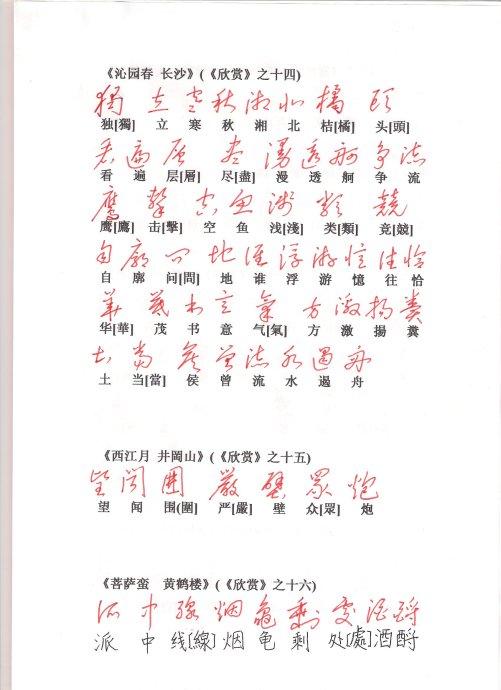 《沁园春 长沙》(《欣赏》之十四)
獨 立 寒 秋 湘 北 橘 頭
独[獨] 立 寒 秋 湘 北 桔[橘] 头[頭]
看 遍 层 盡 漫 透 舸 争 流
看 遍 层[層] 尽[盡] 漫 透 舸 争 流
鹰 擊 空 鱼 浅 類 競
鹰[鷹] 击[擊] 空 鱼 浅[淺] 类[類] 竞[競]
自 廓 问 地 谁 浮 游 憶 往 恰
自 廓 问[問] 地 谁 浮 游 憶 往 恰
華 茂 书 意 氣 方 激 揚 糞
华[華] 茂 书 意 气[氣] 方 激 揚 糞
土 當 侯 曾 流 水 遏 舟
土 当[當] 侯 曾 流 水 遏 舟
《西江月 井岡山》(《欣赏》之十五)
望 闻 圍 嚴 壁 眾 炮
望 闻 围(圍] 严[嚴] 壁 众[眾] 炮
《菩萨蛮 黄鹤楼》(《欣赏》之十六)
派 中 線 烟 龟 剩 處 酒 酹
派 中 线[線] 烟 龟 剩 处[處] 酒 酹